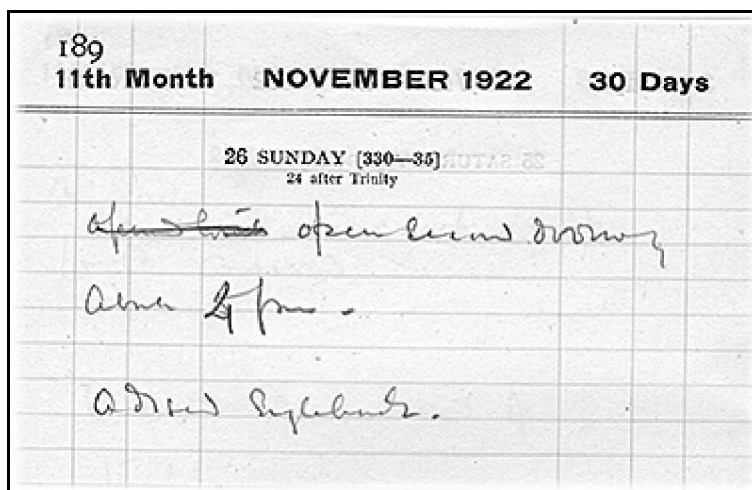 189
11th Month NOVEMBER 1922 30 Days
26 SUNDAY [330—35]
24 after Trinity
open second doorway
about 2 pm.
Advised Engelbach.